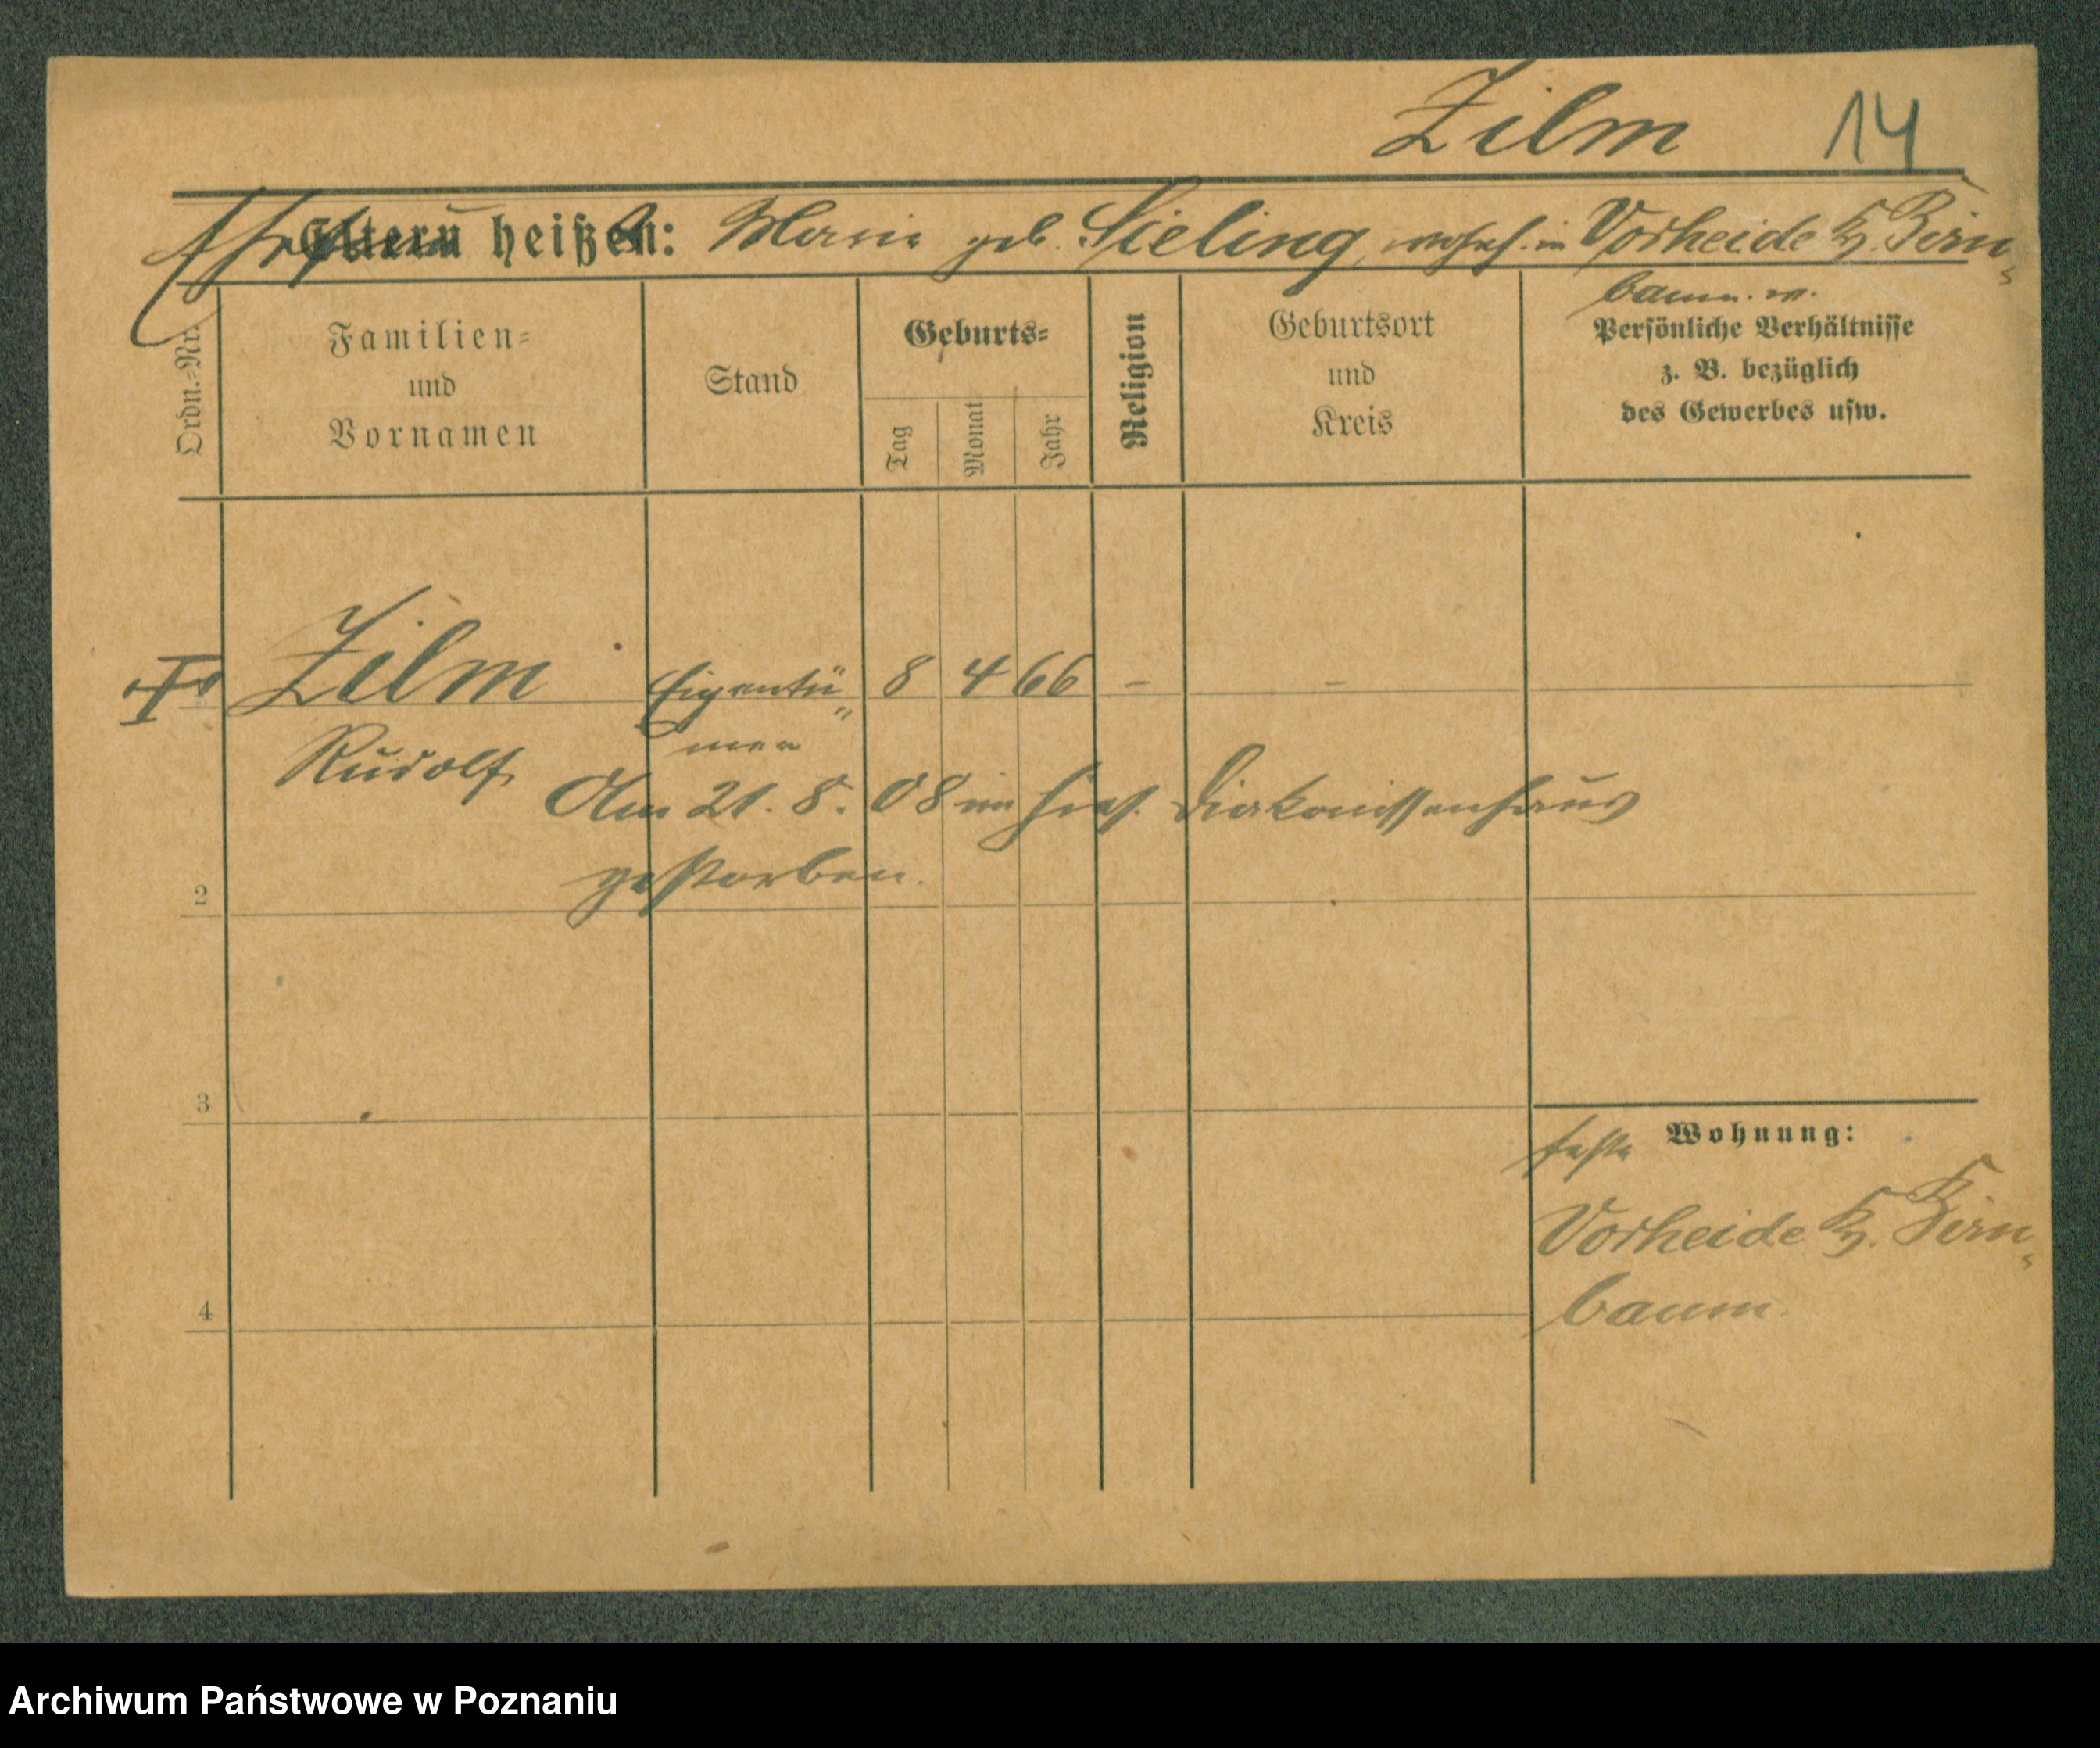 Zilm 14
Ehefrau heißt: Marie geb. Sieling, wohnh. in Vorheide K. Birn-
baum. W.
Ordn.-Nr.
Familien-
und
Vornamen
Stand
Geburts-
Tag
Monat
Jahr
Religion
Geburtsort
und
Kreis
Persönliche Verhältnisse
z. B. bezüglich
des Gewerbes usw.
Zilm Eigentü- 8 4 66 - -
mer
Rudolf
Am 21. 8. 08 im hies. Diakonissenhaus
gestorben.
2
3
Wohnung:
Vorheide K. Birn-
baum.
4
Archiwum Państwowe w Poznaniu